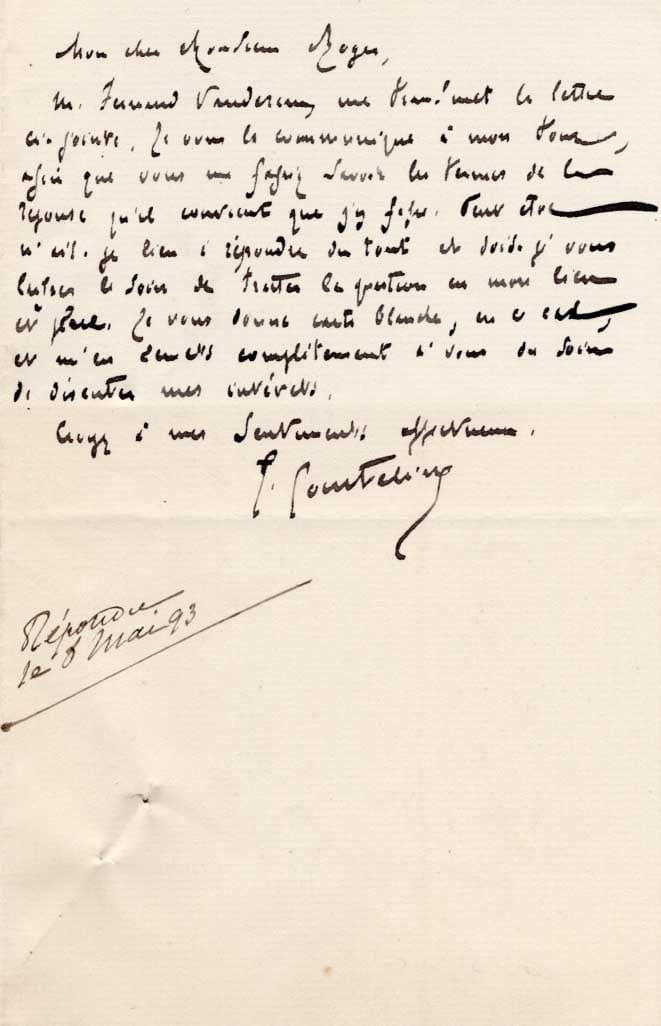 Mon cher Monsieur Roger,
M. Fernand Vanderem, me transmet la lettre
ci-jointe. Je vous la communique à mon tour,
afin que vous me fassiez savoir les termes de la
réponse qu'il convient que j'y fasse. Peut être
n'est-ce lieu à répondre du tout et dois-je vous
laisser le soin de traiter la question en mon lieu
et place. Je vous donne carte blanche, en ce cas,
et m'en remets complètement à vous du soin
de discuter mes intérêts.
Croyez à mes sentiments affectueux.
G. Courteline
Répondre
le 8 Mai 93